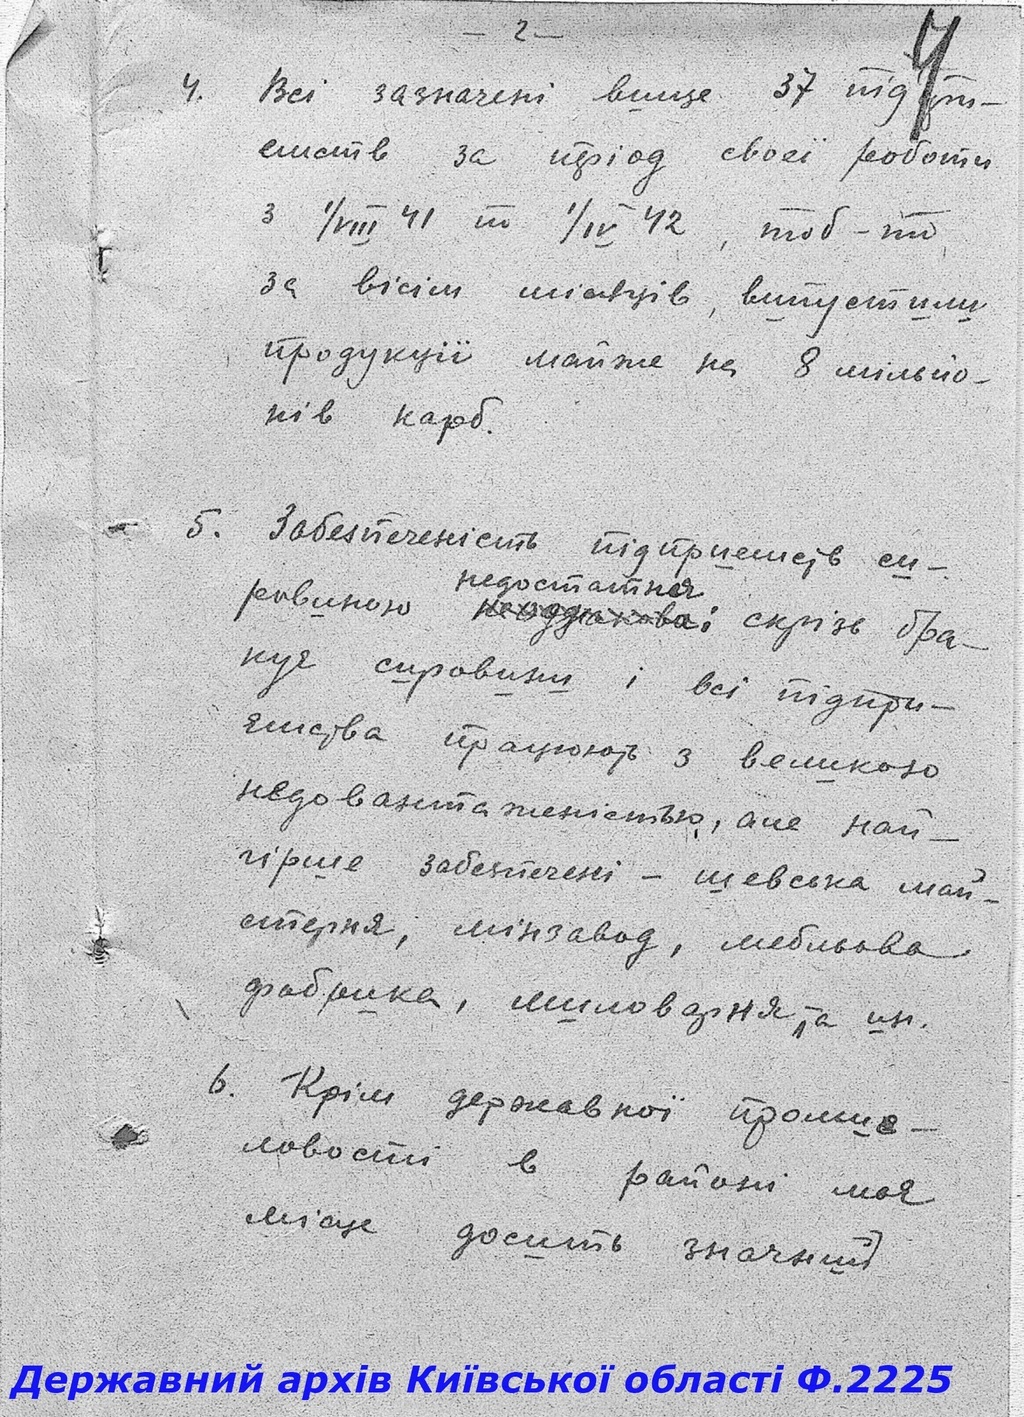 — 2 —
4
4. Всі зазначені вище 37 підпри-
ємств за період своєї роботи
з 1/VIII 41 по 1/IV 42, тоб-то
за вісім місяців, випустили
продукції майже на 8 мільйо-
нів карб.
5. Забезпеченість підприємств си-
недостатня
ровиною неоднакова; скрізь бра-
кує сировини і всі підпри-
ємства працюють з великою
недовантаженістью, але най-
гірше забезпечені – шевська май-
стерня, мінзавод, мебльова
фабрика, миловарня та ин.
6. Крім державної промис-
ловості в районі має
місце досить значний
Державний архів Київської області Ф.2225